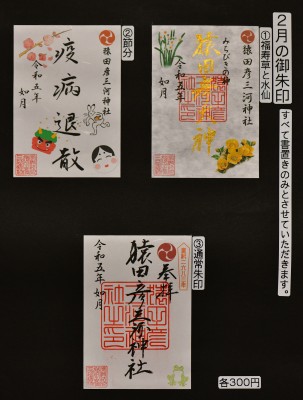 2月の御朱印
すべて書置きのみとさせていただきます。
①福寿草と水仙
猿田彦三河神社
みちびきの神
猿田彦大神
令和五年
如月
②節分
猿田彦三河神社
疫病退散
令和五年
如月
③通常朱印
奉拝
猿田彦三河神社
令和五年如月
各300円